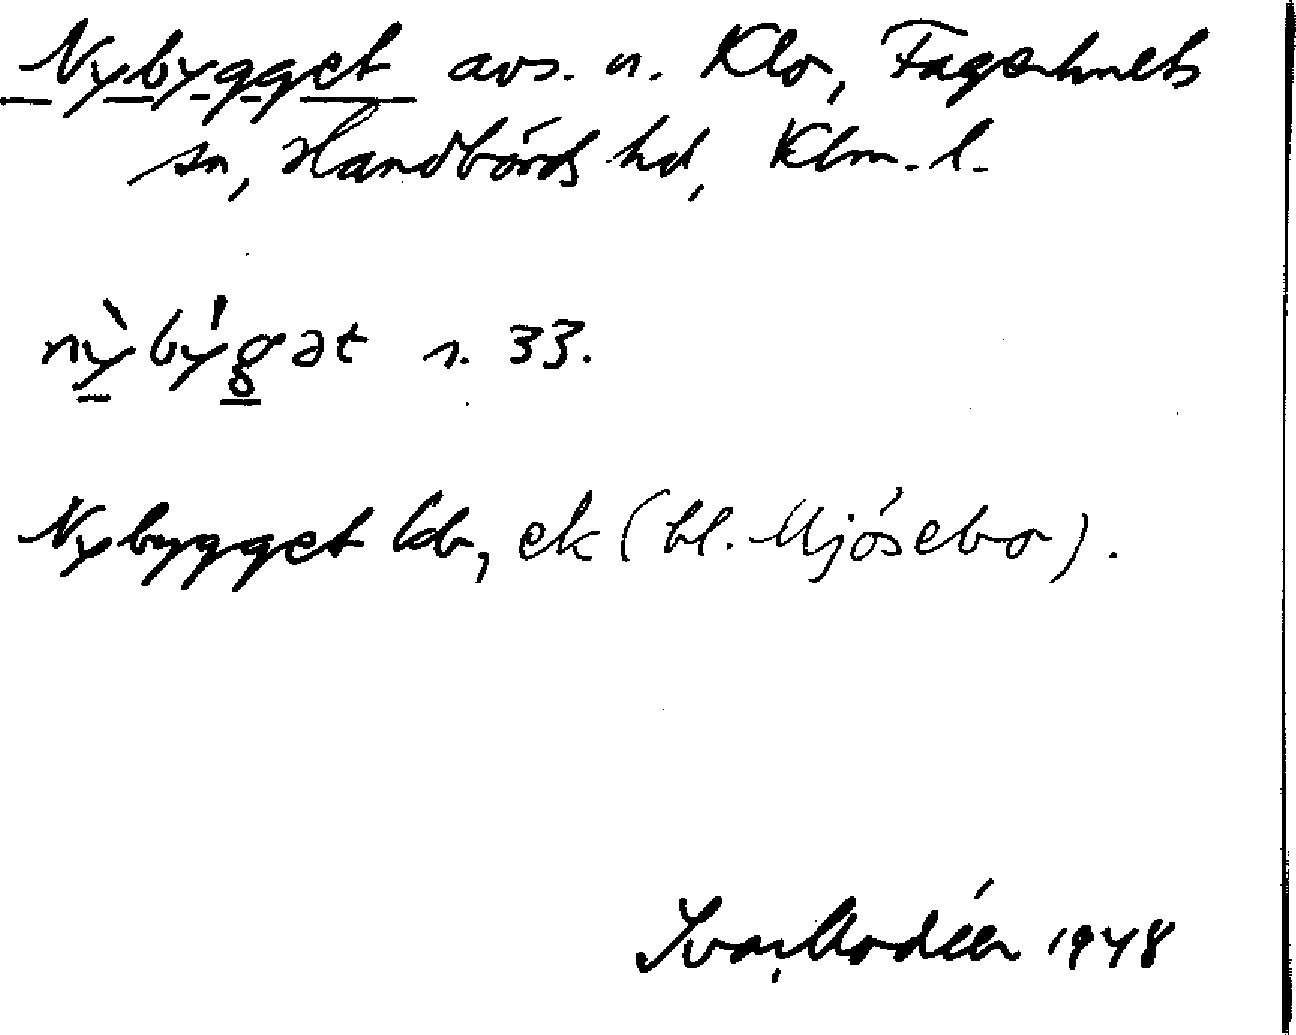 Nybygget avs. u. Klo, Fagerhults
sn, Handbörds hd, Klm. l.
nỳbýgət s. 33.
Nybygget kb, ek (bl. Mjösebo).
Ivar Modéer 1948